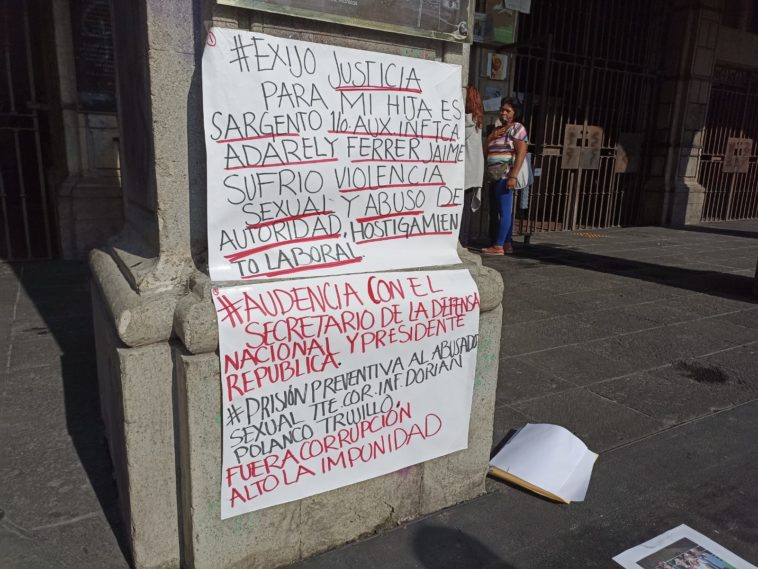 #EXIJO JUSTICIA
PARA MI HIJA ES
SARGENTO 1/o. AUX. INFTCA
ADARELY FERRER JAIME
SUFRIO VIOLENCIA
SEXUAL Y ABUSO DE
AUTORIDAD, HOSTIGAMIEN
TO LABORAL
#AUDENCIA CON EL
SECRETARIO DE LA DEFENSA
NACIONAL Y PRESIDENTE
REPUBLICA.
#PRISIÓN PREVENTIVA AL ABUSADO
SEXUAL TTE COR. INF. DORIAN
POLANCO TRUJILLO.
FUERA CORRUPCIÓN
ALTO LA IMPUNIDAD